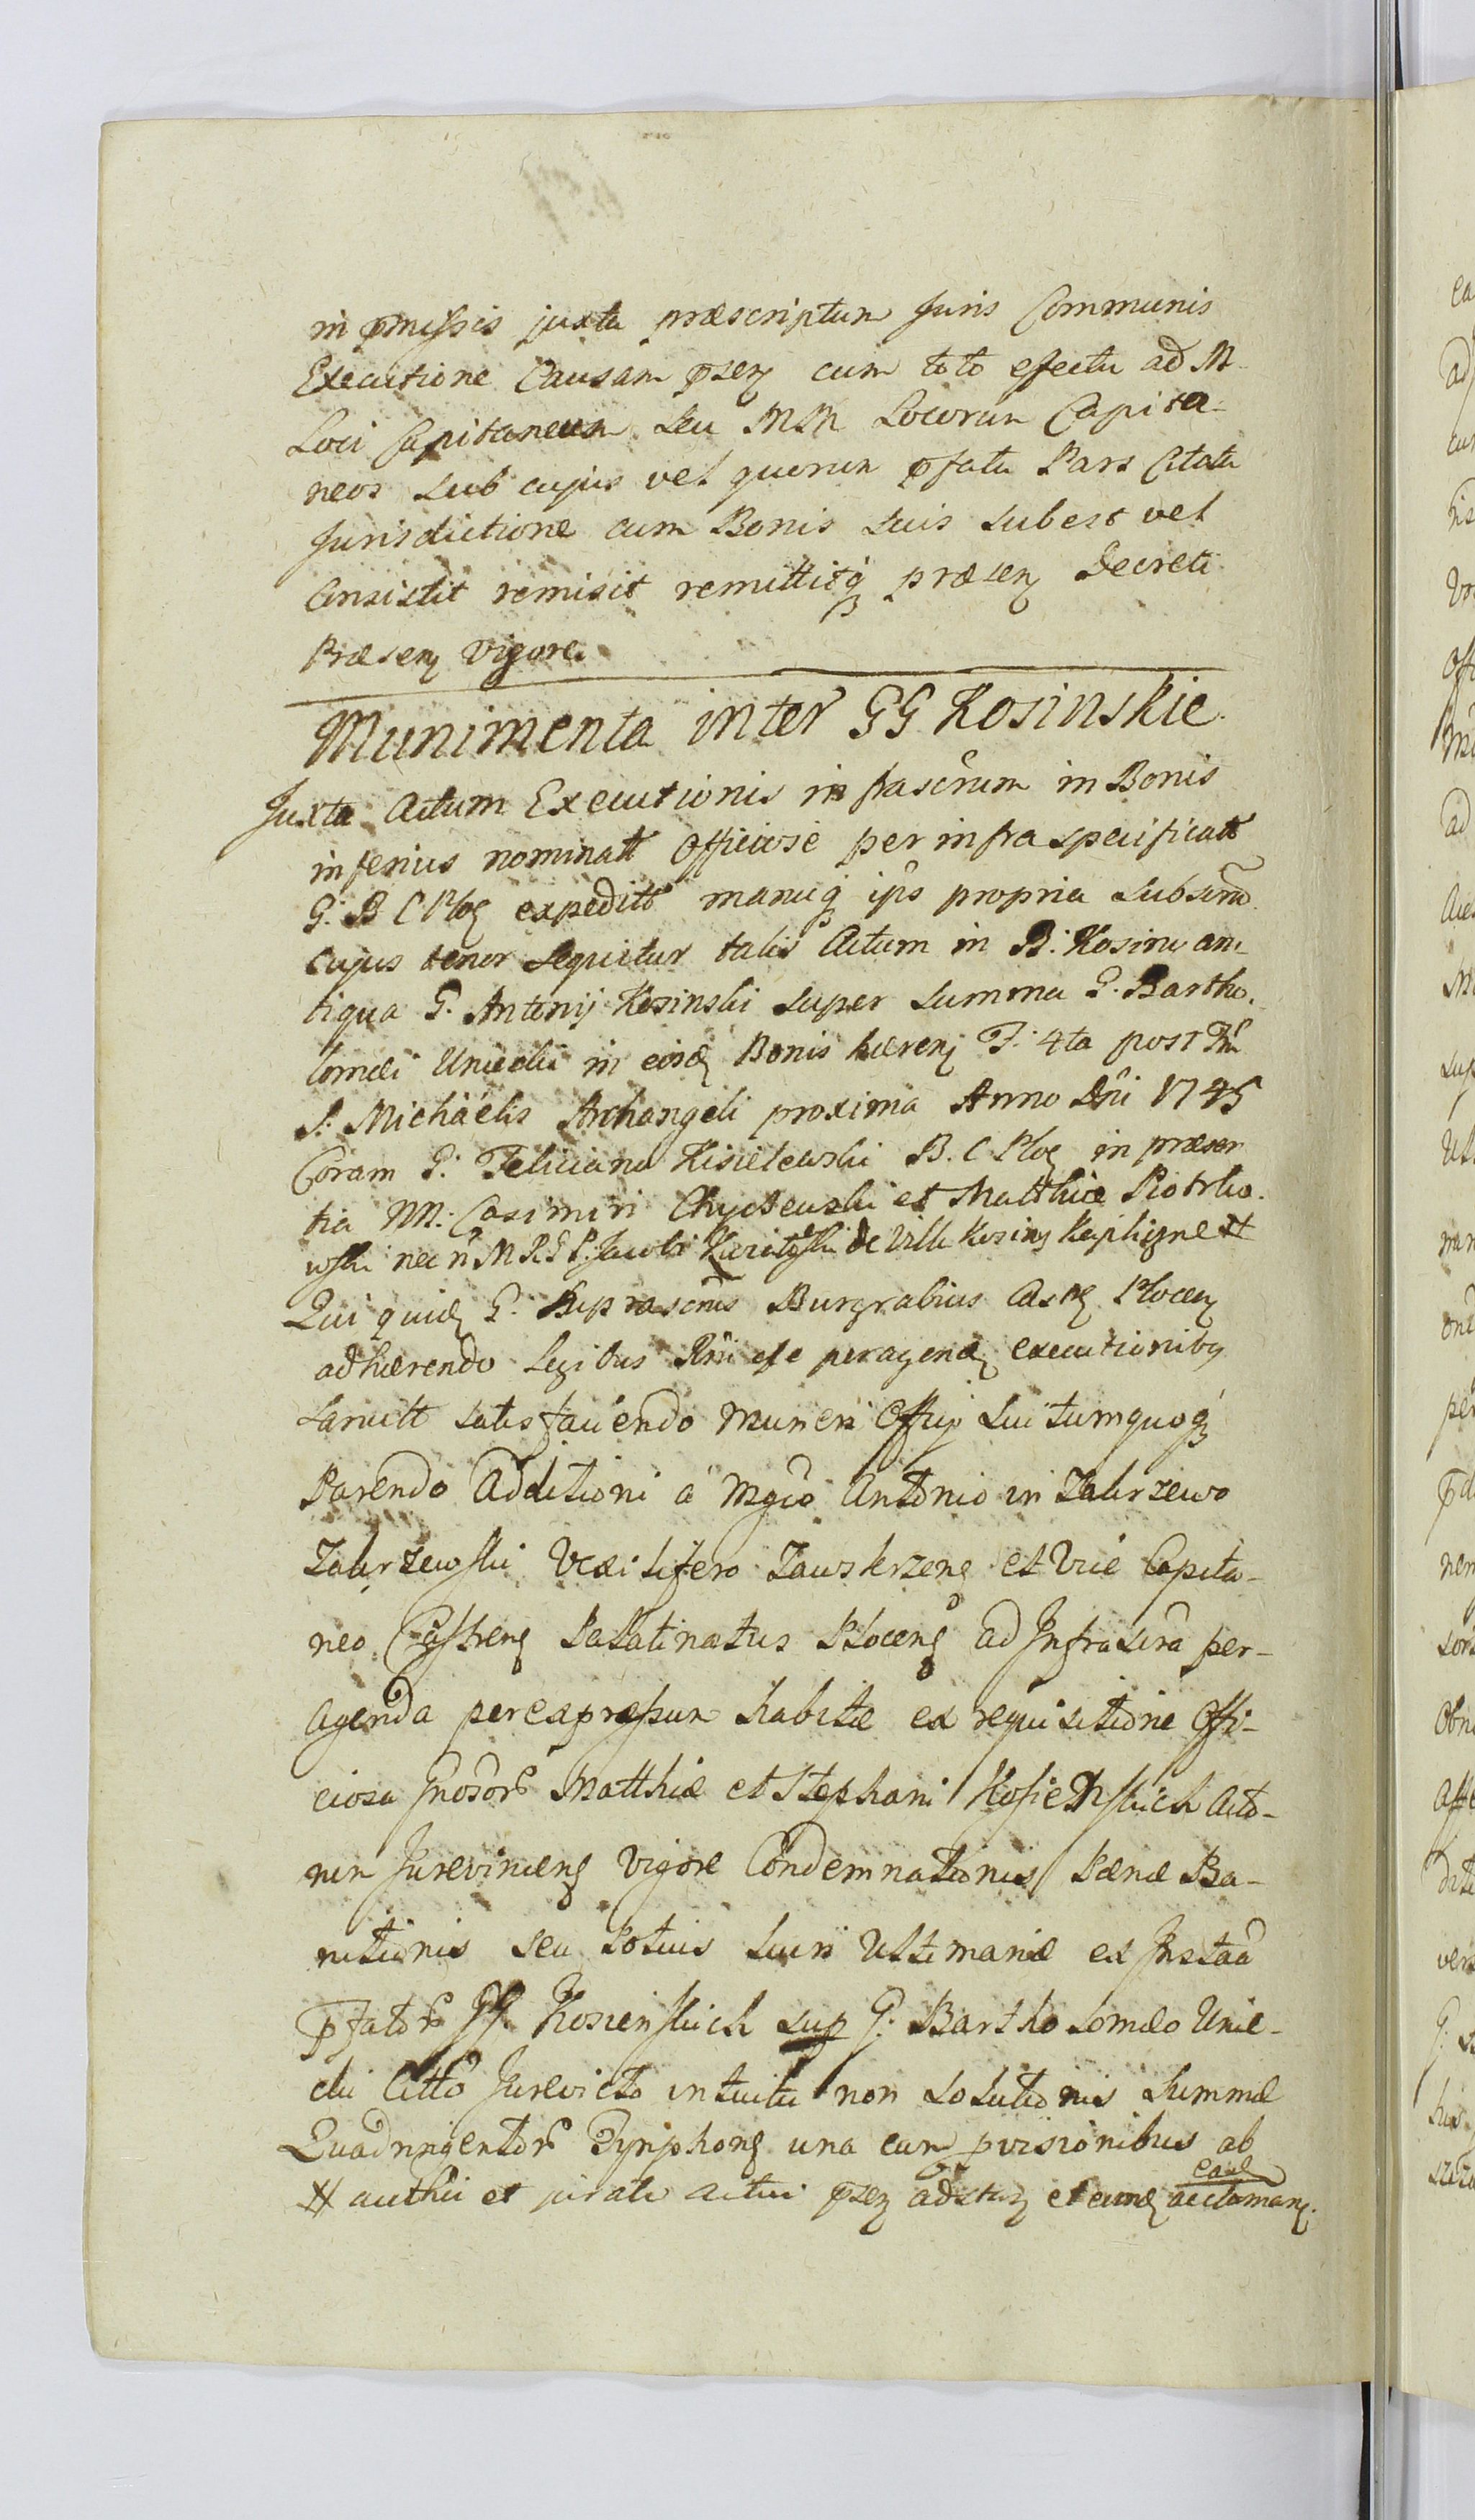 in pmissis juxta præscriptum Juris Communis
Executione Causam psen cum toto efectu ad M
Loci Capitaneum seu MM Locorum Capita-
neos sub cujus vel quorum pfata Pars Citata
Jurisdictione cum Bonis suis subest vel
Consistit remisit remittitq præsen Decreti
Præsen Vigore.
Munimenta inter GG Kosinskie
Juxta Actum Executionis infrascrum in Bonis
inferius nominatt Officiose per infra specificatt
G. B C Ploc expeditt manuq ips propria Subscrn
cujus tenor sequitur talis Actum in B. Kosino an-
tiqua G. Antonij Kosinski super summa G. Bartho-
lomæi Uniecki in eisd Bonis hæren F. 4ta post Fm
S. Michäelis Archangeli proxima Anno Dni 1745
Coram G. Feliciano Kisielewski B. C Ploc in præsen
tia NN. Casimiri Chyczewski et Matthiæ Piotrko-
wski nec n M R G P. Jacobi de Villa Kosiny Kapliczne #
Qui quid G. Suprascrus Burgrabius Cast Plocen
adhærendo Legibus Rni de peragend executionibq
Sancitt satisfaciendo Muneri Officij sui tumquoq
Parendo Additioni a Mgco Antonio in Zakrzewo
Zakrzewski Vexilifero ZawskrzenC et Vice Capita-
neo Castren Palatinatus Plocens ad Infrascra per-
agenda per expressum habitæ ex requisitione Offi-
ciosa Gnosor Matthiæ et Stephani Kosienskich Acto-
rum Jurevincens Vigore Condemnationis Pænæ Ba-
nitionis seu potius Lucri Ultimariæ ex Instaa
pfator GG Kosienskich sup G. Bartholomæo Unie-
cki Citto Jurevicto intuitu non Solutionis Summæ
Quadringentor Tynphons una cum pvisionibus ab
eand
# authii et jurati actui psen adstan et eund actuman.